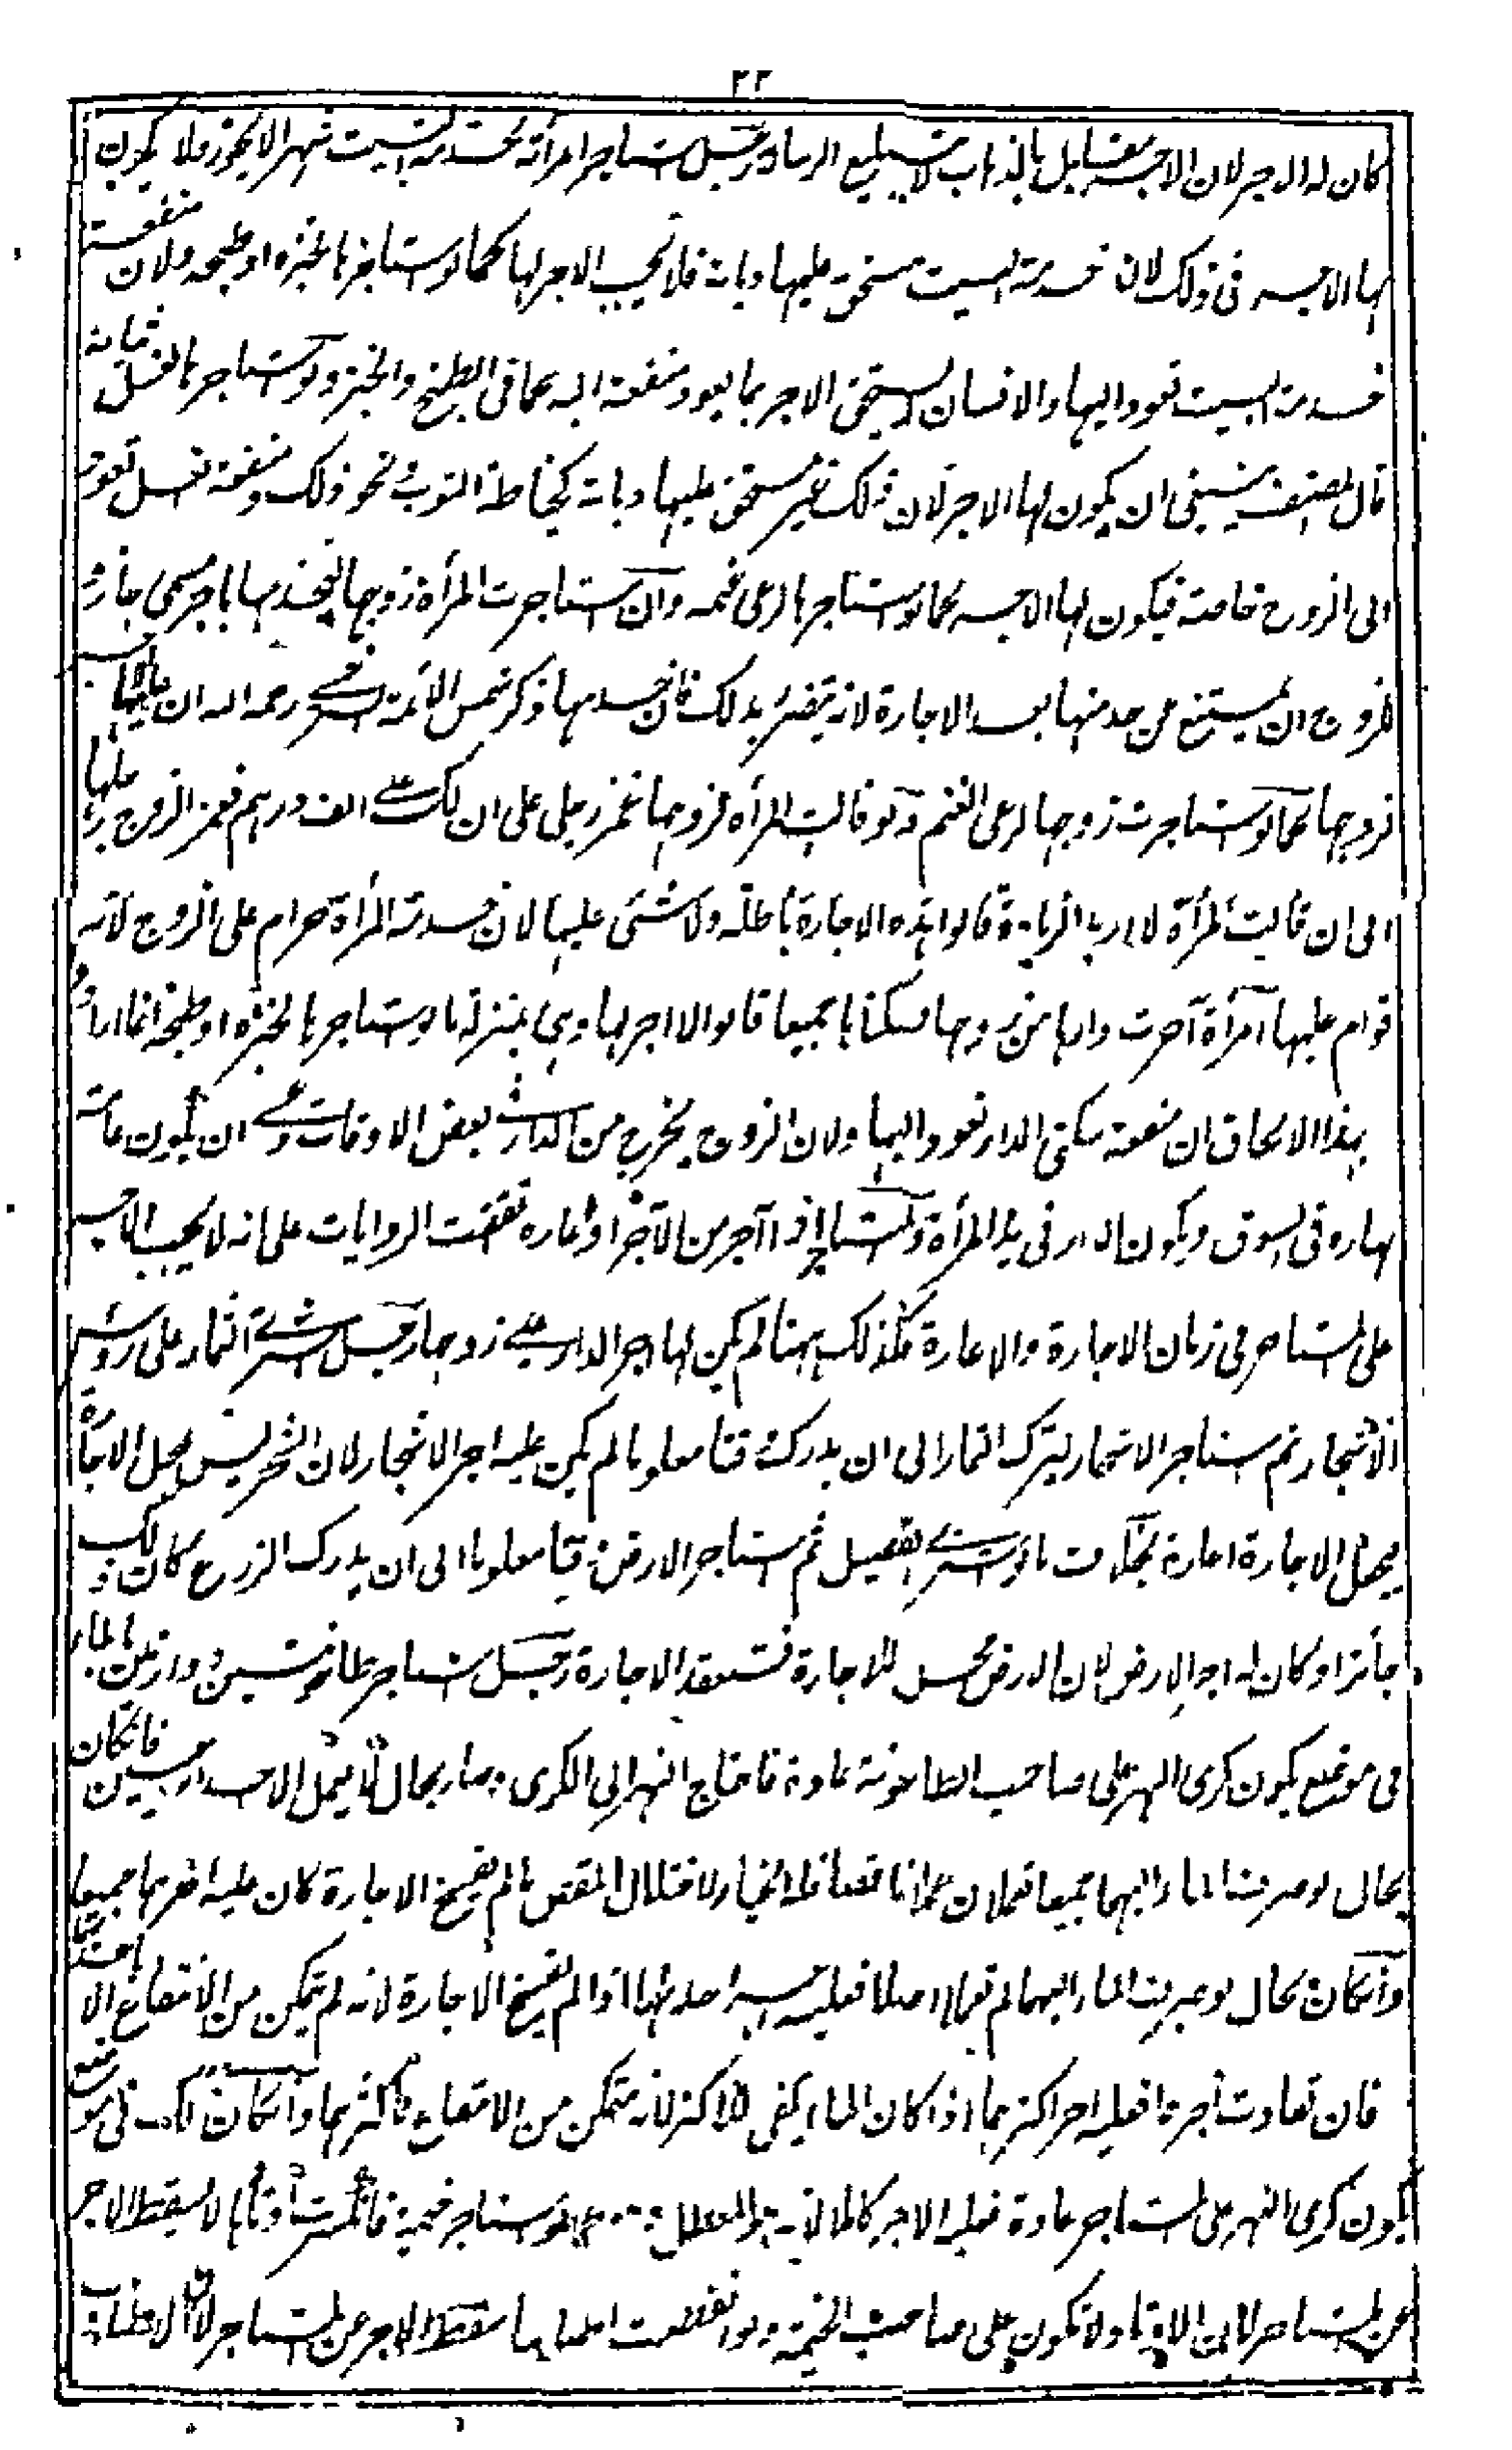 ٢٢
كان له الاجر لان الاجر مقابل بالذهاب لا بتبليغ الرسالة رجل استاجر امرأته لخدمة البيت شهرا لا يجوز ولا يكون
لها الاجر فى ذلك لان خدمة البيت مستحق عليها ديانة فلا يجب الاجر لها كما لو استاجرها لخبزه او طبخه ولان منفعة
خدمة البيت تعود اليها والانسان لا يستحق الاجر بما يعود منفعة اليه كما فى الطبخ والخبز ولو استاجرها لغسل ثيابه
قال المصنف ينبغى ان يكون لها الاجر لان ذلك غير مستحق عليها ديانة كخياطة الثوب ونحو ذلك ومنفعة الغسل تعود
الى الزوج خاصة فيكون لها الاجر كما لو استاجرها لرعى غنمه وان استاجرت المرأة زوجها ليخدمها باجر مسمى جاز و
للزوج ان يمتنع من خدمتها بعد الاجارة لانه يتضرر بذلك فان خدمها ذكر شمس الائمة السرخسى رحمه الله ان عليها اجر
زوجها كما لو استاجرت زوجها لرعى الغنم ولو قالت المرأة لزوجها غمز رجلى على ان لك على الف درهم فغمز الزوج رجلها
الى ان قالت المرأة لا اريد الزيادة قالوا هذه الاجارة باطلة ولا شئ عليها لان خدمة المرأة حرام على الزوج لانه
قوام عليها امرأة آجرت دارها من زوجها وسكناها جميعا قالوا لا اجر لها وهى بمنزلة ما لو استاجرها لخبزه او طبخه انما اراد و
بهذا الالحاق ان منفعة سكنى الدار تعود اليها ولان الزوج يخرج من الدار فى بعض الاوقات وعسى ان يكون عامة
نهاره فى السوق ويكون الدار فى يد المرأة والمستاجر اذا آجر من الآجر او اعاره اتفقت الروايات على انه لا يجب الاجر
على المستاجر فى زمان الاجارة والاعارة فكذلك ههنا لم يكن لها اجر الدار على زوجها رجل اشترى الثمار على رؤس
الاشجار ثم استاجر الاشجار لترك الثمار الى ان يدرك وقتا معلوما لم يكن عليه اجر الاشجار لان الشجر ليس محل الاجارة
فيجعل الاجارة اعارة بخلاف ما لو اشترى القصيل ثم استاجر الارض وقتا معلوما الى ان يدرك الزرع كان ذلك
جائزا وكان له اجر الارض لان الارض محل للاجارة فتنعقد الاجارة رجل استاجر طاحونتين دوارتين بالماء
فى موضع يكون كرى النهر على صاحب الطاحونة عادة فاحتاج النهر الى الكرى وصار بحال لا يعمل الا احد الرحيين فانكان
بحال لو صرف الماء اليهما جميعا تعملان عملا ناقصا فله الخيار لاختلال المقصود فان لم يفسخ الاجارة كان عليه اجرهما جميعا
وانكان بحال لو صرف الماء اليهما لم تعملا اصلا فعليه اجر احدهما اذا لم يفسخ الاجارة لانه لم يتمكن من الانتفاع الا باحدهما
فان تفاوت اجرهما فعليه اجر اكثرهما اذا كان الماء يكفى للاكثر لانه يتمكن من الانتفاع باكثرهما وانكان ذلك فى موضع
يكون كرى النهر على المستاجر عادة فعليه الاجر كاملا لانه هو المعطل ولو استاجر خيمة فانكسرت اوتادها لا يسقط الاجر
عن المستاجر لان الاوتاد لا تكون على صاحب الخيمة ولو انقطعت اطنابها سقط الاجر عن المستاجر لان الاطناب